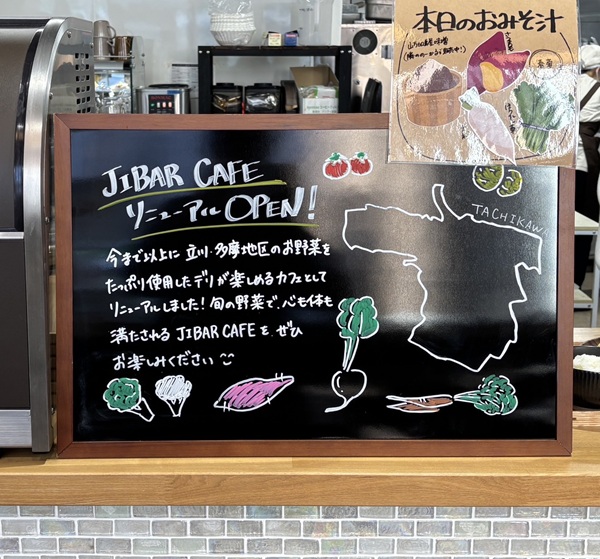 本日のおみそ汁
さつま芋
春菊
JIBAR CAFE
リニューアル OPEN!
TACHIKAW
今まで以上に 立川・多摩地区のお野菜を
たっぷり使用したデリが楽しめるカフェとして
リニューアルしました! 旬の野菜で、心も体も
満たされる JIBAR CAFE を、ぜひ
お楽しみください